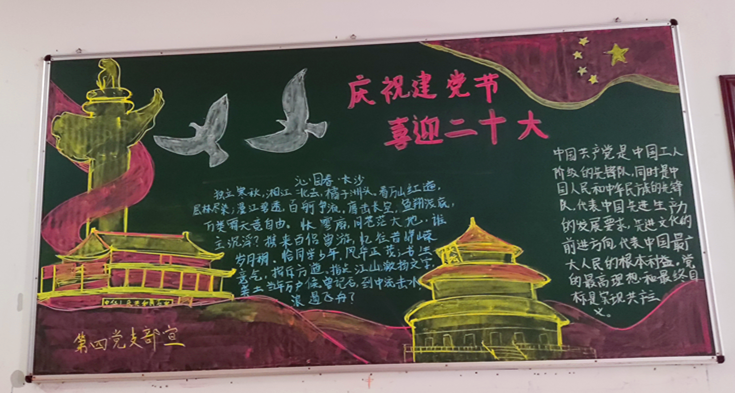 庆祝建党节
喜迎二十大
沁园春·长沙
独立寒秋,湘江北去,橘子洲头,看万山红遍,
层林尽染;漫江碧透,百舸争流。鹰击长空,鱼翔浅底,
万类霜天竞自由。怅寥廓,问苍茫大地,谁
主沉浮?携来百侣曾游,忆往昔峥嵘
岁月稠。恰同学少年,风华正茂;书生
意气,挥斥方遒。指点江山,激扬文字,
粪土当年万户侯。曾记否,到中流击水,
浪遏飞舟?
中国共产党是中国工人
阶级的先锋队,同时是中
国人民和中华民族的先锋
队,代表中国先进生产力
的发展要求,先进文化的
前进方向,代表中国最广
大人民的根本利益。党
的最高理想和最终目
标是实现共产主
义。
第四党支部宣